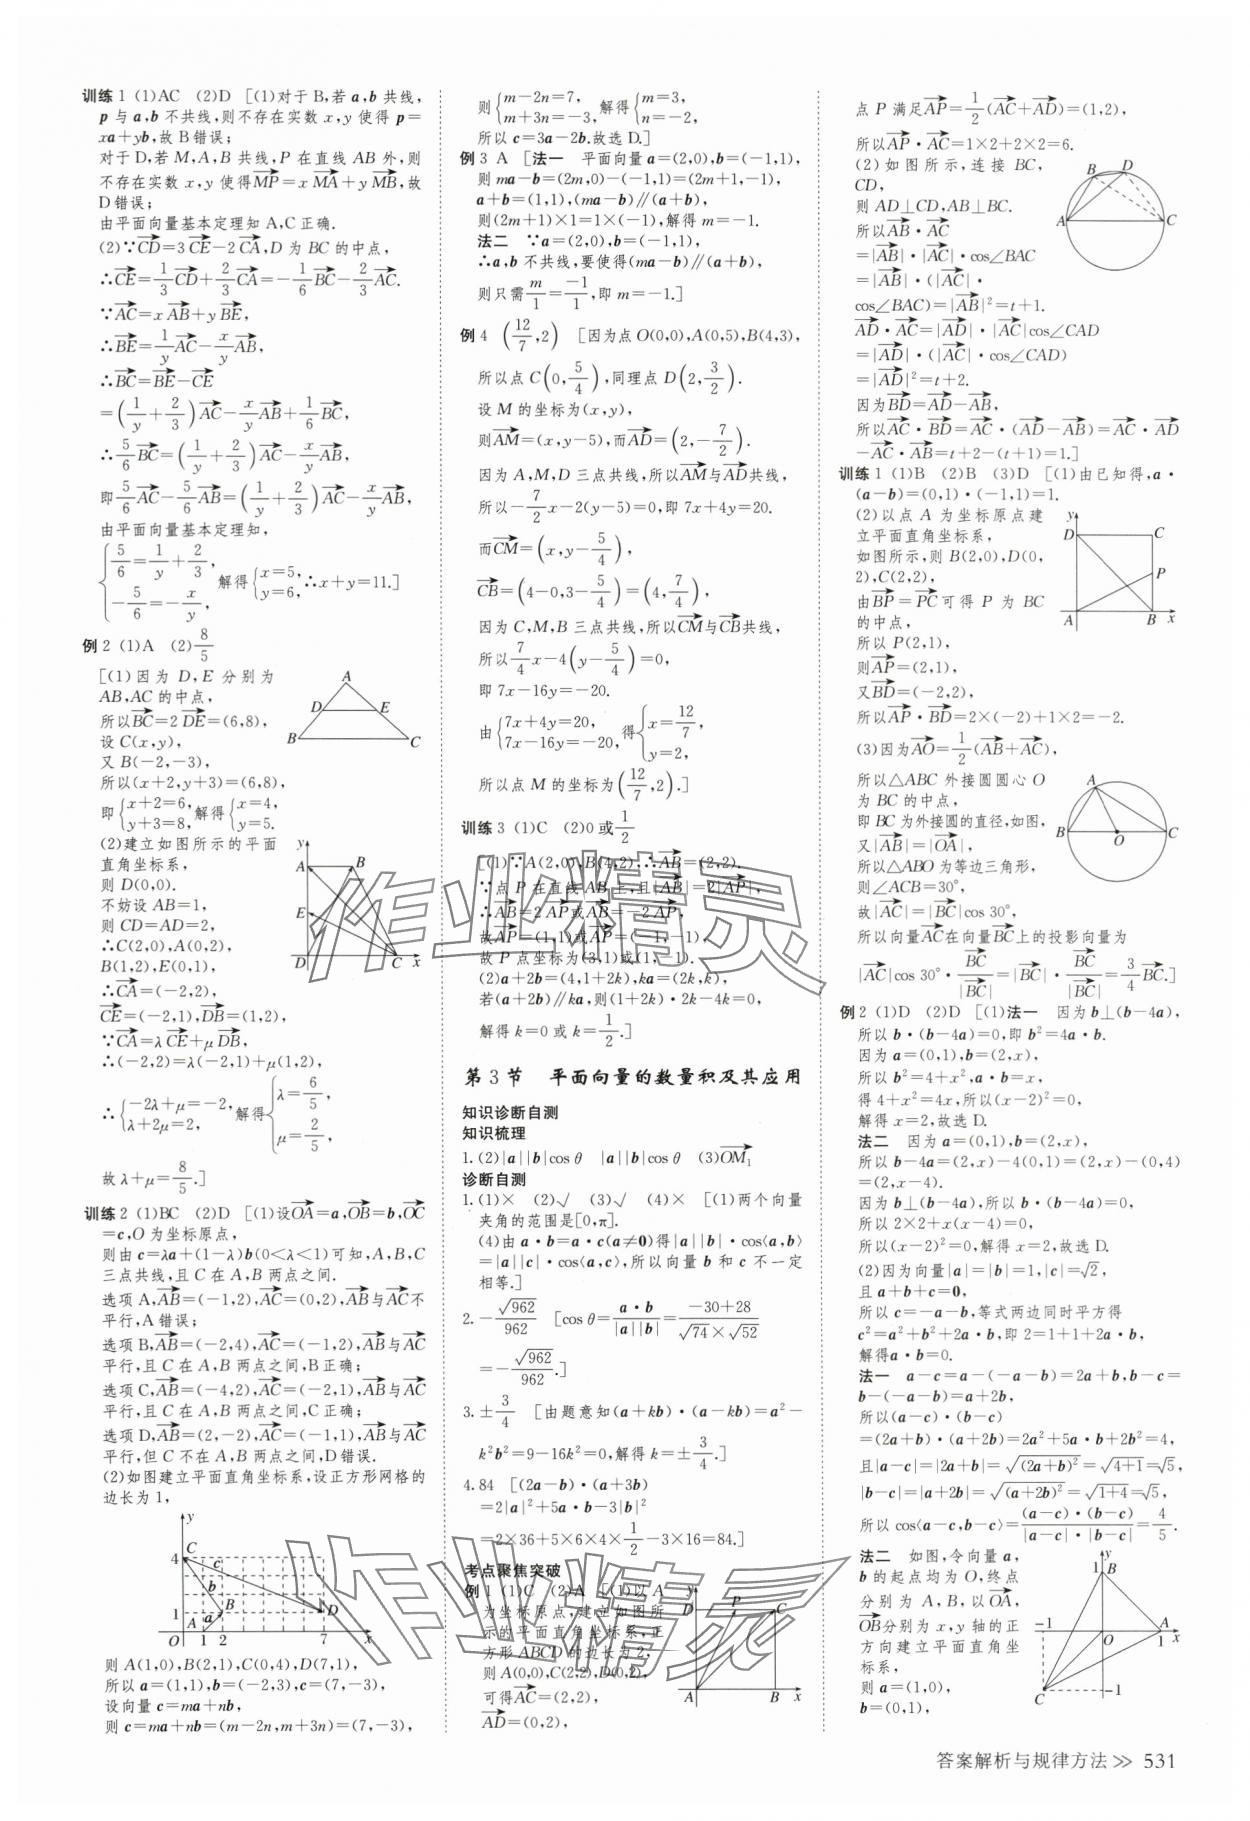 训练1 (1)AC (2)D [(1)对于B,若a,b共线,
p与a,b不共线,则不存在实数x,y使得p=
xa+yb,故B错误;
对于D,若M,A,B共线,P在直线AB外,则
不存在实数x,y使得MP→=xMA→+yMB→,故
D错误;
由平面向量基本定理知A,C正确.
(2)∵CD→=3CE→-2CA→,D为BC的中点,
∴CE→=1/3CD→+2/3CA→=-1/6BC→-2/3AC→.
∵AC→=xAB→+yBE→,
∴BE→=1/yAC→-x/yAB→,
∴BC→=BE→-CE→
=(1/y+2/3)AC→-x/yAB→+1/6BC→,
∴5/6BC→=(1/y+2/3)AC→-x/yAB→,
即5/6AC→-5/6AB→=(1/y+2/3)AC→-x/yAB→,
由平面向量基本定理知,
{5/6=1/y+2/3, -5/6=-x/y, 解得{x=5, y=6, ∴x+y=11.]
例2 (1)A (2)8/5
[(1)因为D,E分别为
AB,AC的中点,
所以BC→=2DE→=(6,8),
设C(x,y),
又B(-2,-3),
所以(x+2,y+3)=(6,8),
即{x+2=6, y+3=8, 解得{x=4, y=5.
A D E B C
(2)建立如图所示的平面
直角坐标系,
则D(0,0).
不妨设AB=1,
则CD=AD=2,
∴C(2,0),A(0,2),
B(1,2),E(0,1),
∴CA→=(-2,2),
CE→=(-2,1),DB→=(1,2),
∵CA→=λCE→+μDB→,
∴(-2,2)=λ(-2,1)+μ(1,2),
∴{-2λ+μ=-2, λ+2μ=2, 解得{λ=6/5, μ=2/5,
故λ+μ=8/5.]
y A B E D C x
训练2 (1)BC (2)D [(1)设OA→=a,OB→=b,OC→
=c,O为坐标原点,
则由c=λa+(1-λ)b(0<λ<1)可知,A,B,C
三点共线,且C在A,B两点之间.
选项A,AB→=(-1,2),AC→=(0,2),AB→与AC→不
平行,A错误;
选项B,AB→=(-2,4),AC→=(-1,2),AB→与AC→
平行,且C在A,B两点之间,B正确;
选项C,AB→=(-4,2),AC→=(-2,1),AB→与AC→
平行,且C在A,B两点之间,C正确;
选项D,AB→=(2,-2),AC→=(-1,1),AB→与AC→
平行,但C不在A,B两点之间,D错误.
(2)如图建立平面直角坐标系,设正方形网格的
边长为1,
y C 4 c b B D 1 A a O 1 2 7 x
则A(1,0),B(2,1),C(0,4),D(7,1),
所以a=(1,1),b=(-2,3),c=(7,-3),
设向量c=ma+nb,
则c=ma+nb=(m-2n,m+3n)=(7,-3),
则{m-2n=7, m+3n=-3, 解得{m=3, n=-2,
所以c=3a-2b.故选D.]
例3 A [法一 平面向量a=(2,0),b=(-1,1),
则ma-b=(2m,0)-(-1,1)=(2m+1,-1),
a+b=(1,1),(ma-b)∥(a+b),
则(2m+1)×1=1×(-1),解得m=-1.
法二 ∵a=(2,0),b=(-1,1),
∴a,b不共线,要使得(ma-b)∥(a+b),
则只需m/1=-1/1,即m=-1.]
例4 (12/7,2) [因为点O(0,0),A(0,5),B(4,3),
所以点C(0,5/4),同理点D(2,3/2).
设M的坐标为(x,y),
则AM→=(x,y-5),而AD→=(2,-7/2).
因为A,M,D三点共线,所以AM→与AD→共线,
所以-7/2x-2(y-5)=0,即7x+4y=20.
而CM→=(x,y-5/4),
CB→=(4-0,3-5/4)=(4,7/4),
因为C,M,B三点共线,所以CM→与CB→共线,
所以7/4x-4(y-5/4)=0,
即7x-16y=-20.
由{7x+4y=20, 7x-16y=-20, 得{x=12/7, y=2,
所以点M的坐标为(12/7,2).]
训练3 (1)C (2)0或1/2
[(1)∵A(2,0),B(4,2),∴AB→=(2,2).
∵点P在直线AB上,且|AB→|=2|AP→|,
∴AB→=2AP→或AB→=-2AP→,
故AP→=(1,1)或AP→=(-1,-1),
故P点坐标为(3,1)或(1,-1).
(2)a+2b=(4,1+2k),ka=(2k,k),
若(a+2b)∥ka,则(1+2k)·2k-4k=0,
解得k=0或k=1/2.]
第3节 平面向量的数量积及其应用
知识诊断自测
知识梳理
1.(2)|a||b|cos θ |a||b|cos θ (3)OM₁→
诊断自测
1.(1)× (2)√ (3)√ (4)× [(1)两个向量
夹角的范围是[0,π].
(4)由a·b=a·c(a≠0)得|a||b|·cos⟨a,b⟩
=|a||c|·cos⟨a,c⟩,所以向量b和c不一定
相等.]
2.-√962/962 [cos θ=a·b/|a||b|=(-30+28)/(√74×√52)
=-√962/962.]
3.±3/4 [由题意知(a+kb)·(a-kb)=a²-
k²b²=9-16k²=0,解得k=±3/4.]
4.84 [(2a-b)·(a+3b)
=2|a|²+5a·b-3|b|²
=2×36+5×6×4×1/2-3×16=84.]
考点聚焦突破
例1 (1)C (2)A [(1)以A
为坐标原点,建立如图所
示的平面直角坐标系,正
方形ABCD的边长为2,
则A(0,0),C(2,2),D(0,2),
可得AC→=(2,2),
AD→=(0,2),
y D P C A B x
点P满足AP→=1/2(AC→+AD→)=(1,2),
所以AP→·AC→=1×2+2×2=6.
(2)如图所示,连接BC,
CD,
则AD⊥CD,AB⊥BC.
所以AB→·AC→
=|AB→|·|AC→|·cos∠BAC
=|AB→|·(|AC→|·
cos∠BAC)=|AB→|²=t+1.
B D A C
AD→·AC→=|AD→|·|AC→|cos∠CAD
=|AD→|·(|AC→|·cos∠CAD)
=|AD→|²=t+2.
因为BD→=AD→-AB→,
所以AC→·BD→=AC→·(AD→-AB→)=AC→·AD→
-AC→·AB→=t+2-(t+1)=1.]
训练1 (1)B (2)B (3)D [(1)由已知得,a·
(a-b)=(0,1)·(-1,1)=1.
(2)以点A为坐标原点建
立平面直角坐标系,
如图所示,则B(2,0),D(0,
2),C(2,2),
由BP→=PC→可得P为BC
的中点,
所以P(2,1),
则AP→=(2,1),
又BD→=(-2,2),
所以AP→·BD→=2×(-2)+1×2=-2.
y D C P A B x
(3)因为AO→=1/2(AB→+AC→),
所以△ABC外接圆圆心O
为BC的中点,
即BC为外接圆的直径,如图,
又|AB→|=|OA→|,
所以△ABO为等边三角形,
则∠ACB=30°,
故|AC→|=|BC→|cos 30°,
A B O C
所以向量AC→在向量BC→上的投影向量为
|AC→|cos 30°·BC→/|BC→|=|BC→|·BC→/|BC→|=3/4BC→.]
例2 (1)D (2)D [(1)法一 因为b⊥(b-4a),
所以b·(b-4a)=0,即b²=4a·b.
因为a=(0,1),b=(2,x),
所以b²=4+x²,a·b=x,
得4+x²=4x,所以(x-2)²=0,
解得x=2,故选D.
法二 因为a=(0,1),b=(2,x),
所以b-4a=(2,x)-4(0,1)=(2,x)-(0,4)
=(2,x-4).
因为b⊥(b-4a),所以b·(b-4a)=0,
所以2×2+x(x-4)=0,
所以(x-2)²=0,解得x=2,故选D.
(2)因为向量|a|=|b|=1,|c|=√2,
且a+b+c=0,
所以c=-a-b,等式两边同时平方得
c²=a²+b²+2a·b,即2=1+1+2a·b,
解得a·b=0.
法一 a-c=a-(-a-b)=2a+b,b-c=
b-(-a-b)=a+2b,
所以(a-c)·(b-c)
=(2a+b)·(a+2b)=2a²+5a·b+2b²=4,
且|a-c|=|2a+b|=√(2a+b)²=√4+1=√5,
|b-c|=|a+2b|=√(a+2b)²=√1+4=√5,
所以cos⟨a-c,b-c⟩=(a-c)·(b-c)/|a-c|·|b-c|=4/5.
法二 如图,令向量a,
b的起点均为O,终点
分别为A,B,以OA→,
OB→分别为x,y轴的正
方向建立平面直角坐
标系,
则a=(1,0),
b=(0,1),
y 1 B -1 O A 1 x C -1
答案解析与规律方法>> 531
作业精灵
作业精灵